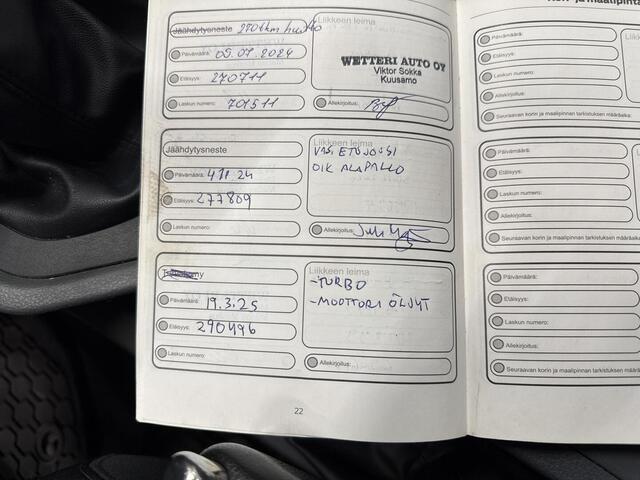 Jäähdytysneste 270tkm huolto
Liikkeen leima
Päivämäärä: 09.07.2024
WETTERI AUTO OY
Viktor Sokka
Kuusamo
Etäisyys: 270711
Laskun numero: 701511
Allekirjoitus:
Jäähdytysneste
Liikkeen leima
VAS ETUJOUSI
OIK ALAPALLO
Päivämäärä: 4.11.24
Etäisyys: 277809
Laskun numero:
Allekirjoitus:
Liikkeen leima
-TURBO
-MOOTTORI ÖLJYT
Päivämäärä: 19.3.25
Etäisyys: 290496
Laskun numero:
Allekirjoitus:
22
Päivämäärä:
Etäisyys:
Laskun numero:
Allekirjoitus:
Seuraavan korin ja maalipinnan tarkistuksen määräaika:
Päivämäärä:
Etäisyys:
Laskun numero:
Allekirjoitus:
Seuraavan korin ja maalipinnan tarkistuksen määrä
Päivämäärä:
Etäisyys:
Laskun numero:
Allekirjoitus:
Seuraavan korin ja maalipinnan tarkistuksen määrä